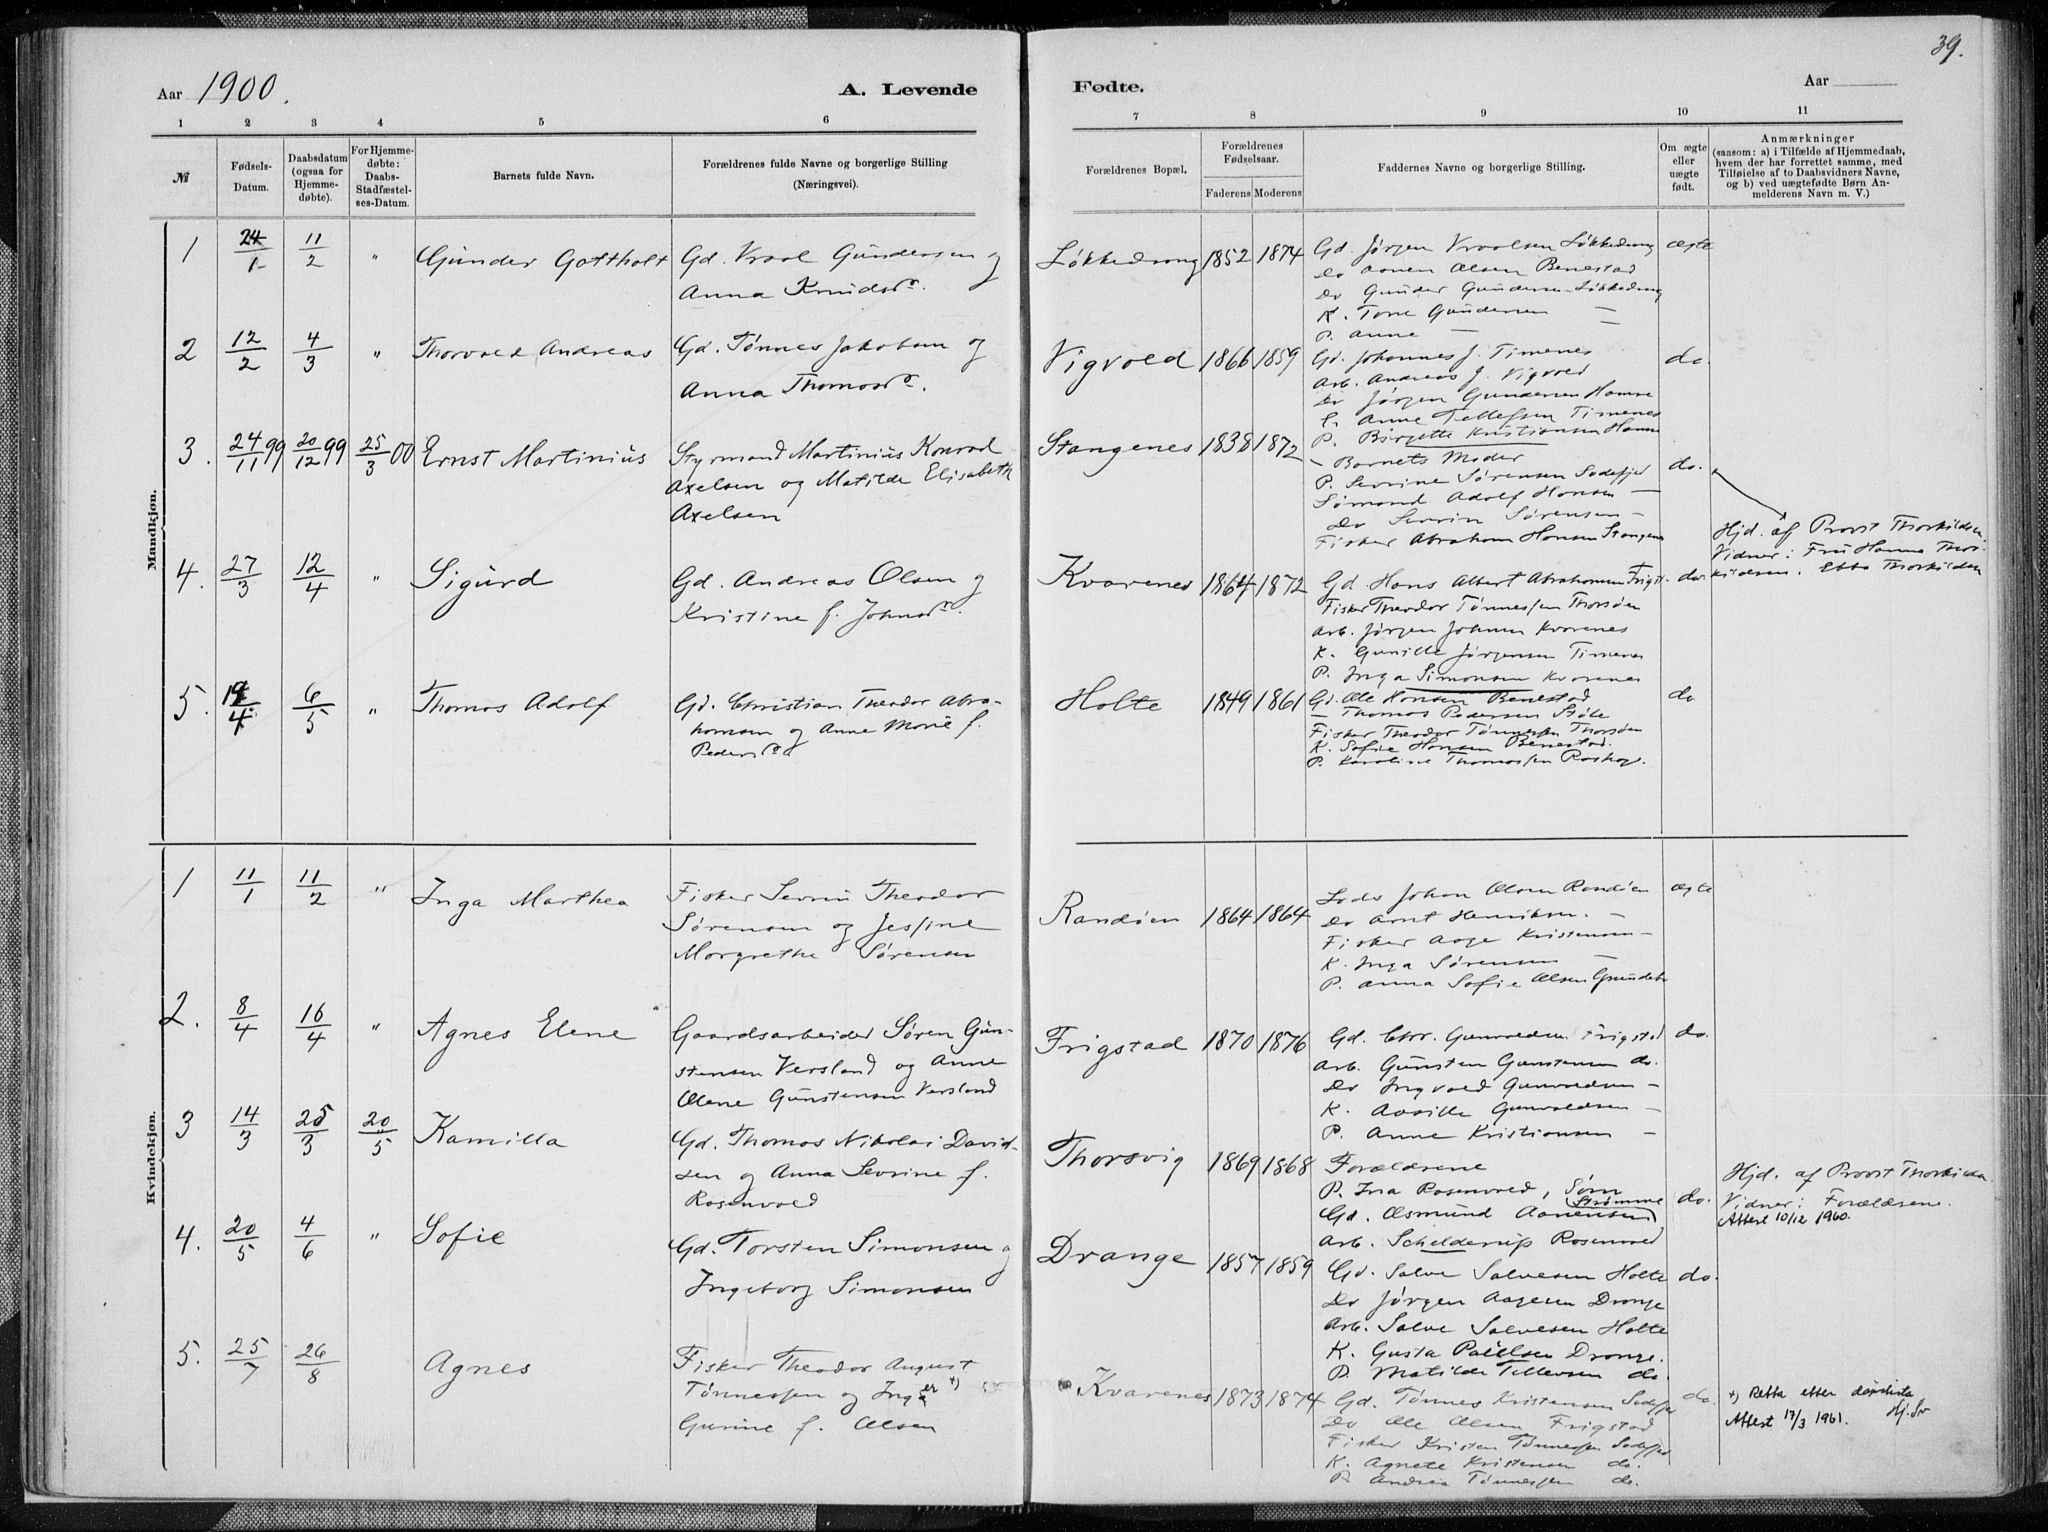 39.
Aar 1900.
A. Levende Fødte.
Aar
1 2 3 4 5 6 7 8 9 10 11
№
Fødsels-Datum.
Daabsdatum (ogsaa for Hjemmedøbte).
For Hjemmedøbte: Daabs-Stadfæstelses-Datum.
Barnets fulde Navn.
Forældrenes fulde Navne og borgerlige Stilling (Næringsvei).
Forældrenes Bopæl.
Forældrenes Fødselsaar.
Faderens Moderens
Faddernes Navne og borgerlige Stilling.
Om ægte eller uægte født.
Anmærkninger (saasom: a) i Tilfælde af Hjemmedaab, hvem der har forrettet samme, med Tilføielse af to Daabsvidners Navne, og b) ved uægtefødte Børn Anmelderens Navn m. V.)
Mandkjøn.
1 24/1 11/2 " Gunder Gottholt
Gd. Vraal Gundersen og
Anna Knudsd.
Løkkedrong 1852 1874
Gd. Jørgen Vraalsen Løkkedrong
Do Aanen Olsen Benestad
Do Gunder Gundersen Løkkedrong
K. Tone Gundersen —
P. Anne — —
ægte
2 12/2 4/3 " Thorvald Andreas
Gd. Tønnes Jakobsen og
Anna Thomasd.
Vigvold 1866 1859
Gd. Johannes J. Timenes
Arb. Andreas J. Vigvold
Do Jørgen Gundersen Hamre
K. Anne Tellefsen Timenes
P. Birgitte Kristiansen Hamre
do.
3. 24/11 99 20/12 99 25/3 00 Ernst Martinius
Styrmand Martinius Konrad
Axelsen og Matilde Elisabeth
Axelsen
Stangenes 1838 1872
– Barnets Moder
P. Sevrine Sørensen Sodefjed
Sømand Adolf Hansen —
Do Sevrin Sørensen —
Fisker Abraham Hansen Stangenes
do.
Hjd. af Provst Thorkildsen.
Vidner: Fru Hanna Thor-
kildsen. Ebba Thorkildsen
4. 27/3 12/4 " Sigurd
Gd. Andreas Olsen og
Kristine f. Johnsd.
Kvarenes 1864 1872
Gd. Hans Albert Abrahamsen Frigst.
Fisker Theodor Tønnessen Thorsøen
Arb. Jørgen Johnsen Kvarenes
K. Gunille Jørgensen Timenes
P. Inga Simonsen Kvarenes
do.
5. 19/4 6/5 " Thomas Adolf
Gd. Christian Theodor Abra-
hamsen og Anne Marie f.
Pedersd.
Holte 1849 1861
Gd. Ole Hansen Benestad
— Thomas Pedersen Støle
Fisker Theodor Tønnessen Thorsøen
K. Sofie Hansen Benestad.
P. Karoline Thomassen
do
Kvindekjøn.
1 11/1 11/2 " Inga Marthea
Fisker Sevrin Theodor
Sørensen og Jessine
Margrethe Sørensen
Randøen 1864 1864
Lods Johan Olsen Randøen
Do Arnt Henriksen. —
Fisker Aage Kristensen —
K. Inga Sørensen —
P. Anna Sofie Olsen
ægte
2. 8/4 16/4 " Agnes Elene
Gaardsarbeider Søren Gun-
stensen Versland og Anne
Olene Gunstensen Versland
Frigstad 1870 1876
Gd. Chr. Gunvaldsen Frigstad
Arb. Gunsten Gunstensen do.
Do Ingvald Gunvaldsen —
K. Aasille Gunvaldsen —
P. Anne Kristiansen —
do.
3 14/3 25/3 20/5 Kamilla
Gd. Thomas Nikolai David-
sen og Anna Sevrine f.
Rosenvold
Thorsvig 1869 1868
Forældrene
P. Ina Rosenvold, Søm
Gd. Osmund Aanensen Strømme
Arb. Schelderup Rosenvold
do.
Hjd. af Provst Thorkildsen.
Vidner: Forældrene.
Attest 10/12 1960.
4. 20/5 4/6 " Sofie
Gd. Torsten Simonsen og
Ingeborg Simonsen
Drange 1857 1859
Gd. Salve Salvesen Holte
Do Jørgen Aagesen Drange
Arb. Salve Salvesen Holte
K. Gusta Paulsen Drange.
P. Matilde Tellevsen do.
do.
5. 25/7 26/8 Agnes
Fisker Theodor August
Tønnessen og Inger +)
Gurine f. Olsen
Kvarenes 1873 1874
Gd. Tønnes Kristensen Sodefjed
Do Ole Olsen Frigstad
Fisker Kristen Tønnessen Sodefjed
K. Agnete Kristensen do.
P. Andrea Tønnessen do.
do.
+) Retta etter dåpslista
Attest 17/3 1961. Hj. Sv